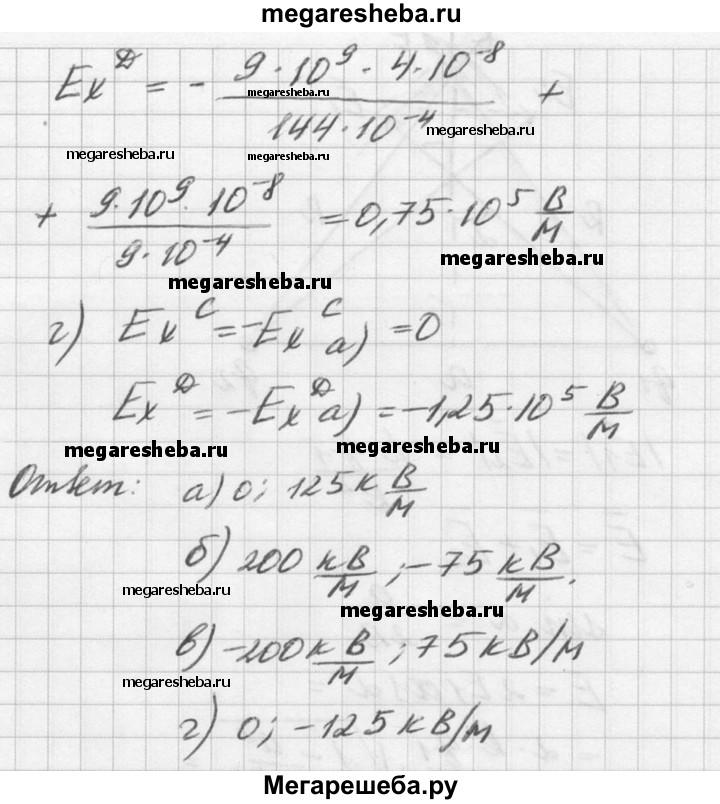 megaresheba.ru
Ex^Д = - (9·10^9·4·10^-8)/(144·10^-4) +
megaresheba.ru
megaresheba.ru
megaresheba.ru
megaresheba.ru
+ (9·10^9·10^-8)/(9·10^-4) = 0,75·10^5 В/м
megaresheba.ru
megaresheba.ru
г) Ex^C = -Ex^C а) = 0
Ex^Д = -Ex^Д а) = -1,25·10^5 В/м
megaresheba.ru
megaresheba.ru
Ответ: а) 0; 125 к В/м
б) 200 кВ/м; -75 кВ/м.
megaresheba.ru
megaresheba.ru
в) -200 кВ/м; 75 кВ/м
megaresheba.ru
г) 0; -125 кВ/м
Мегарешеба.ру